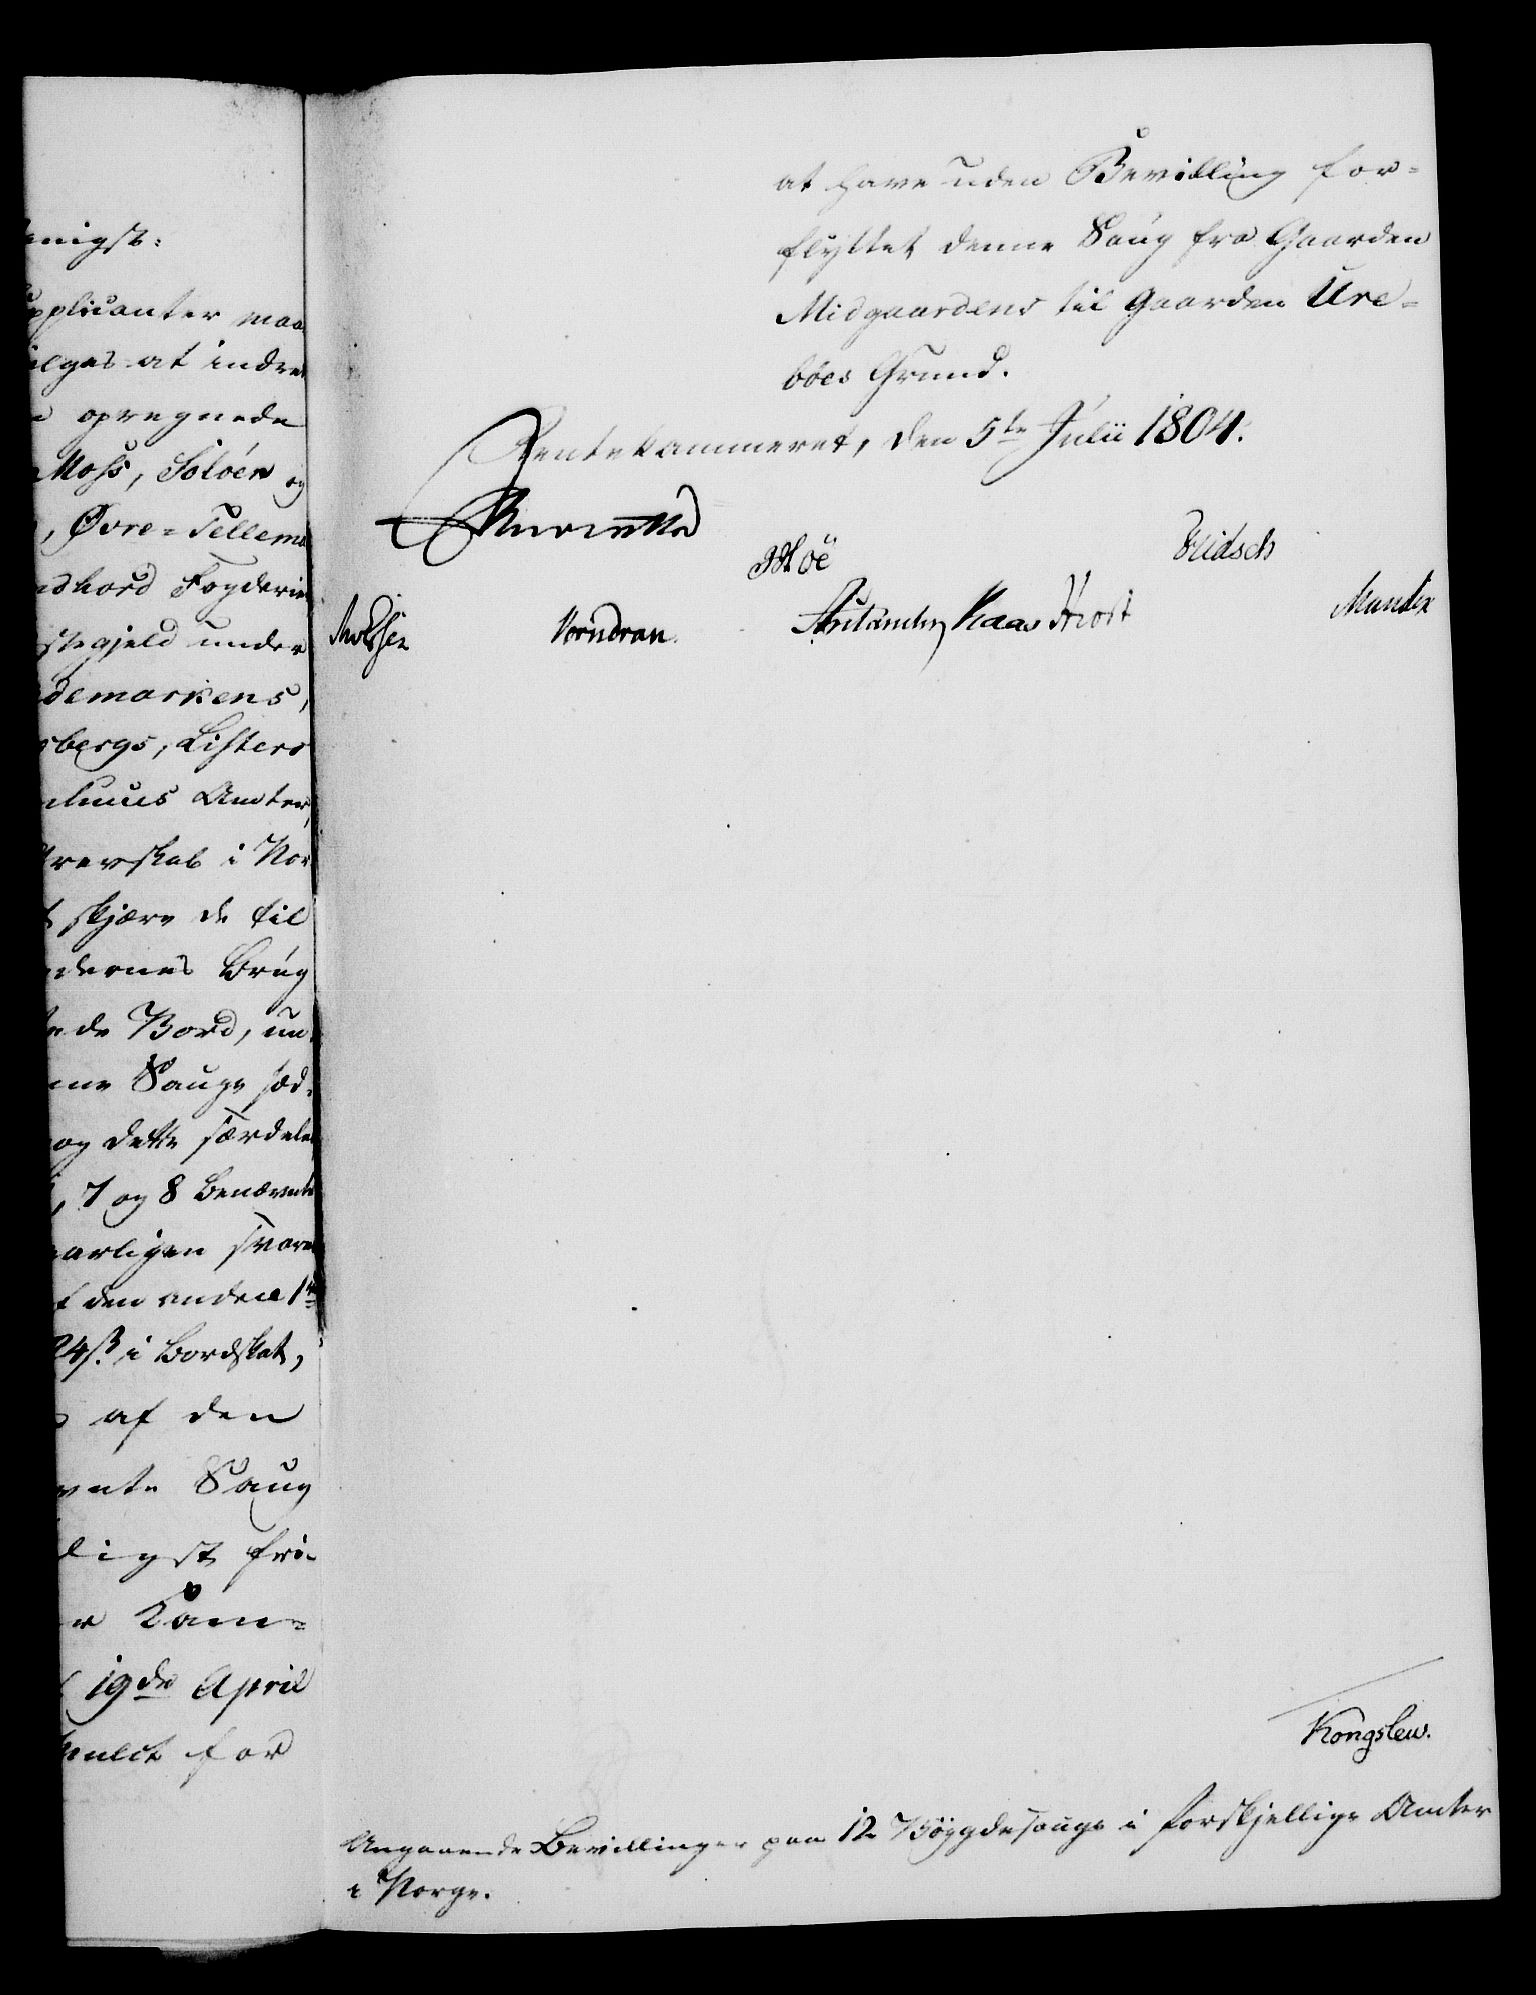 enigst:
upplicanter maa
ilges at indre
opregnede
Moss, Soløer og
, Øvre=Tellema
dhord Fogderie
stegjeld under
demarkens,
sbergs, Listers
huus Amter,
revskab i Nor
skjære de til
dernes Brug
de Bord, un
Sauge sød
og dette særdele
, 7 og 8 benævnte
aarligen svare
den anden 1
24ß. i Bordskat,
af den
vnte Saug
digst fri-
r Kam=
19de April
mulct for
at have uden Bevilling for=
flyttet denne Saug fra Gaarden
Midgaardens til Gaarden Ure=
böes Grund.
Rentekammeret, den 5te Julii 1804.
Reventlow
Moe Fridsch
Knudsen Vorndran. Kaas Hvost Manthey
Kongslew.
Angaaende Bevillinger paa 12 Böygdesauge i forskjellige Amter
i Norge.